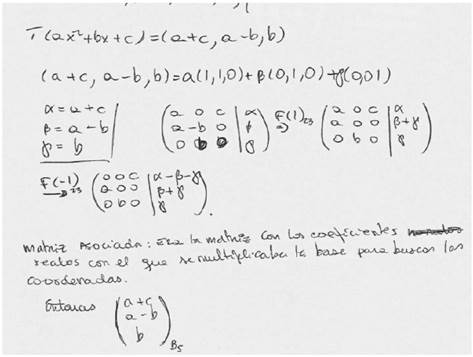 T(ax²+bx+c)=(a+c, a-b, b)
(a+c, a-b, b)=a(1,1,0)+β(0,1,0)+γ(0,0,1)
α = a+c
β = a-b
γ = b
( a 0 c | α
a -b 0 | β
0 b 0 | γ ) F(1)₂₃ → ( a 0 c | α
a 0 0 | β+γ
0 b 0 | γ )
F(-1)₂₃ → ( 0 0 c | α-β-γ
a 0 0 | β+γ
0 b 0 | γ ).
Matriz Asociada: Era la matriz con los coeficientes
reales con el que se multiplicaba la base para buscar las
coordenadas.
Entonces ( a+c
a-b
b )B₅